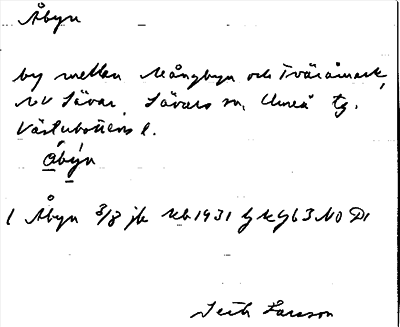 Åbyn
by mellan Mångbyn och Tväråmark,
NV Sävar. Sävars sn, Umeå tg.
Västerbottens l.
åbyn
Åbyn 3/8 jb 1931
Larsson